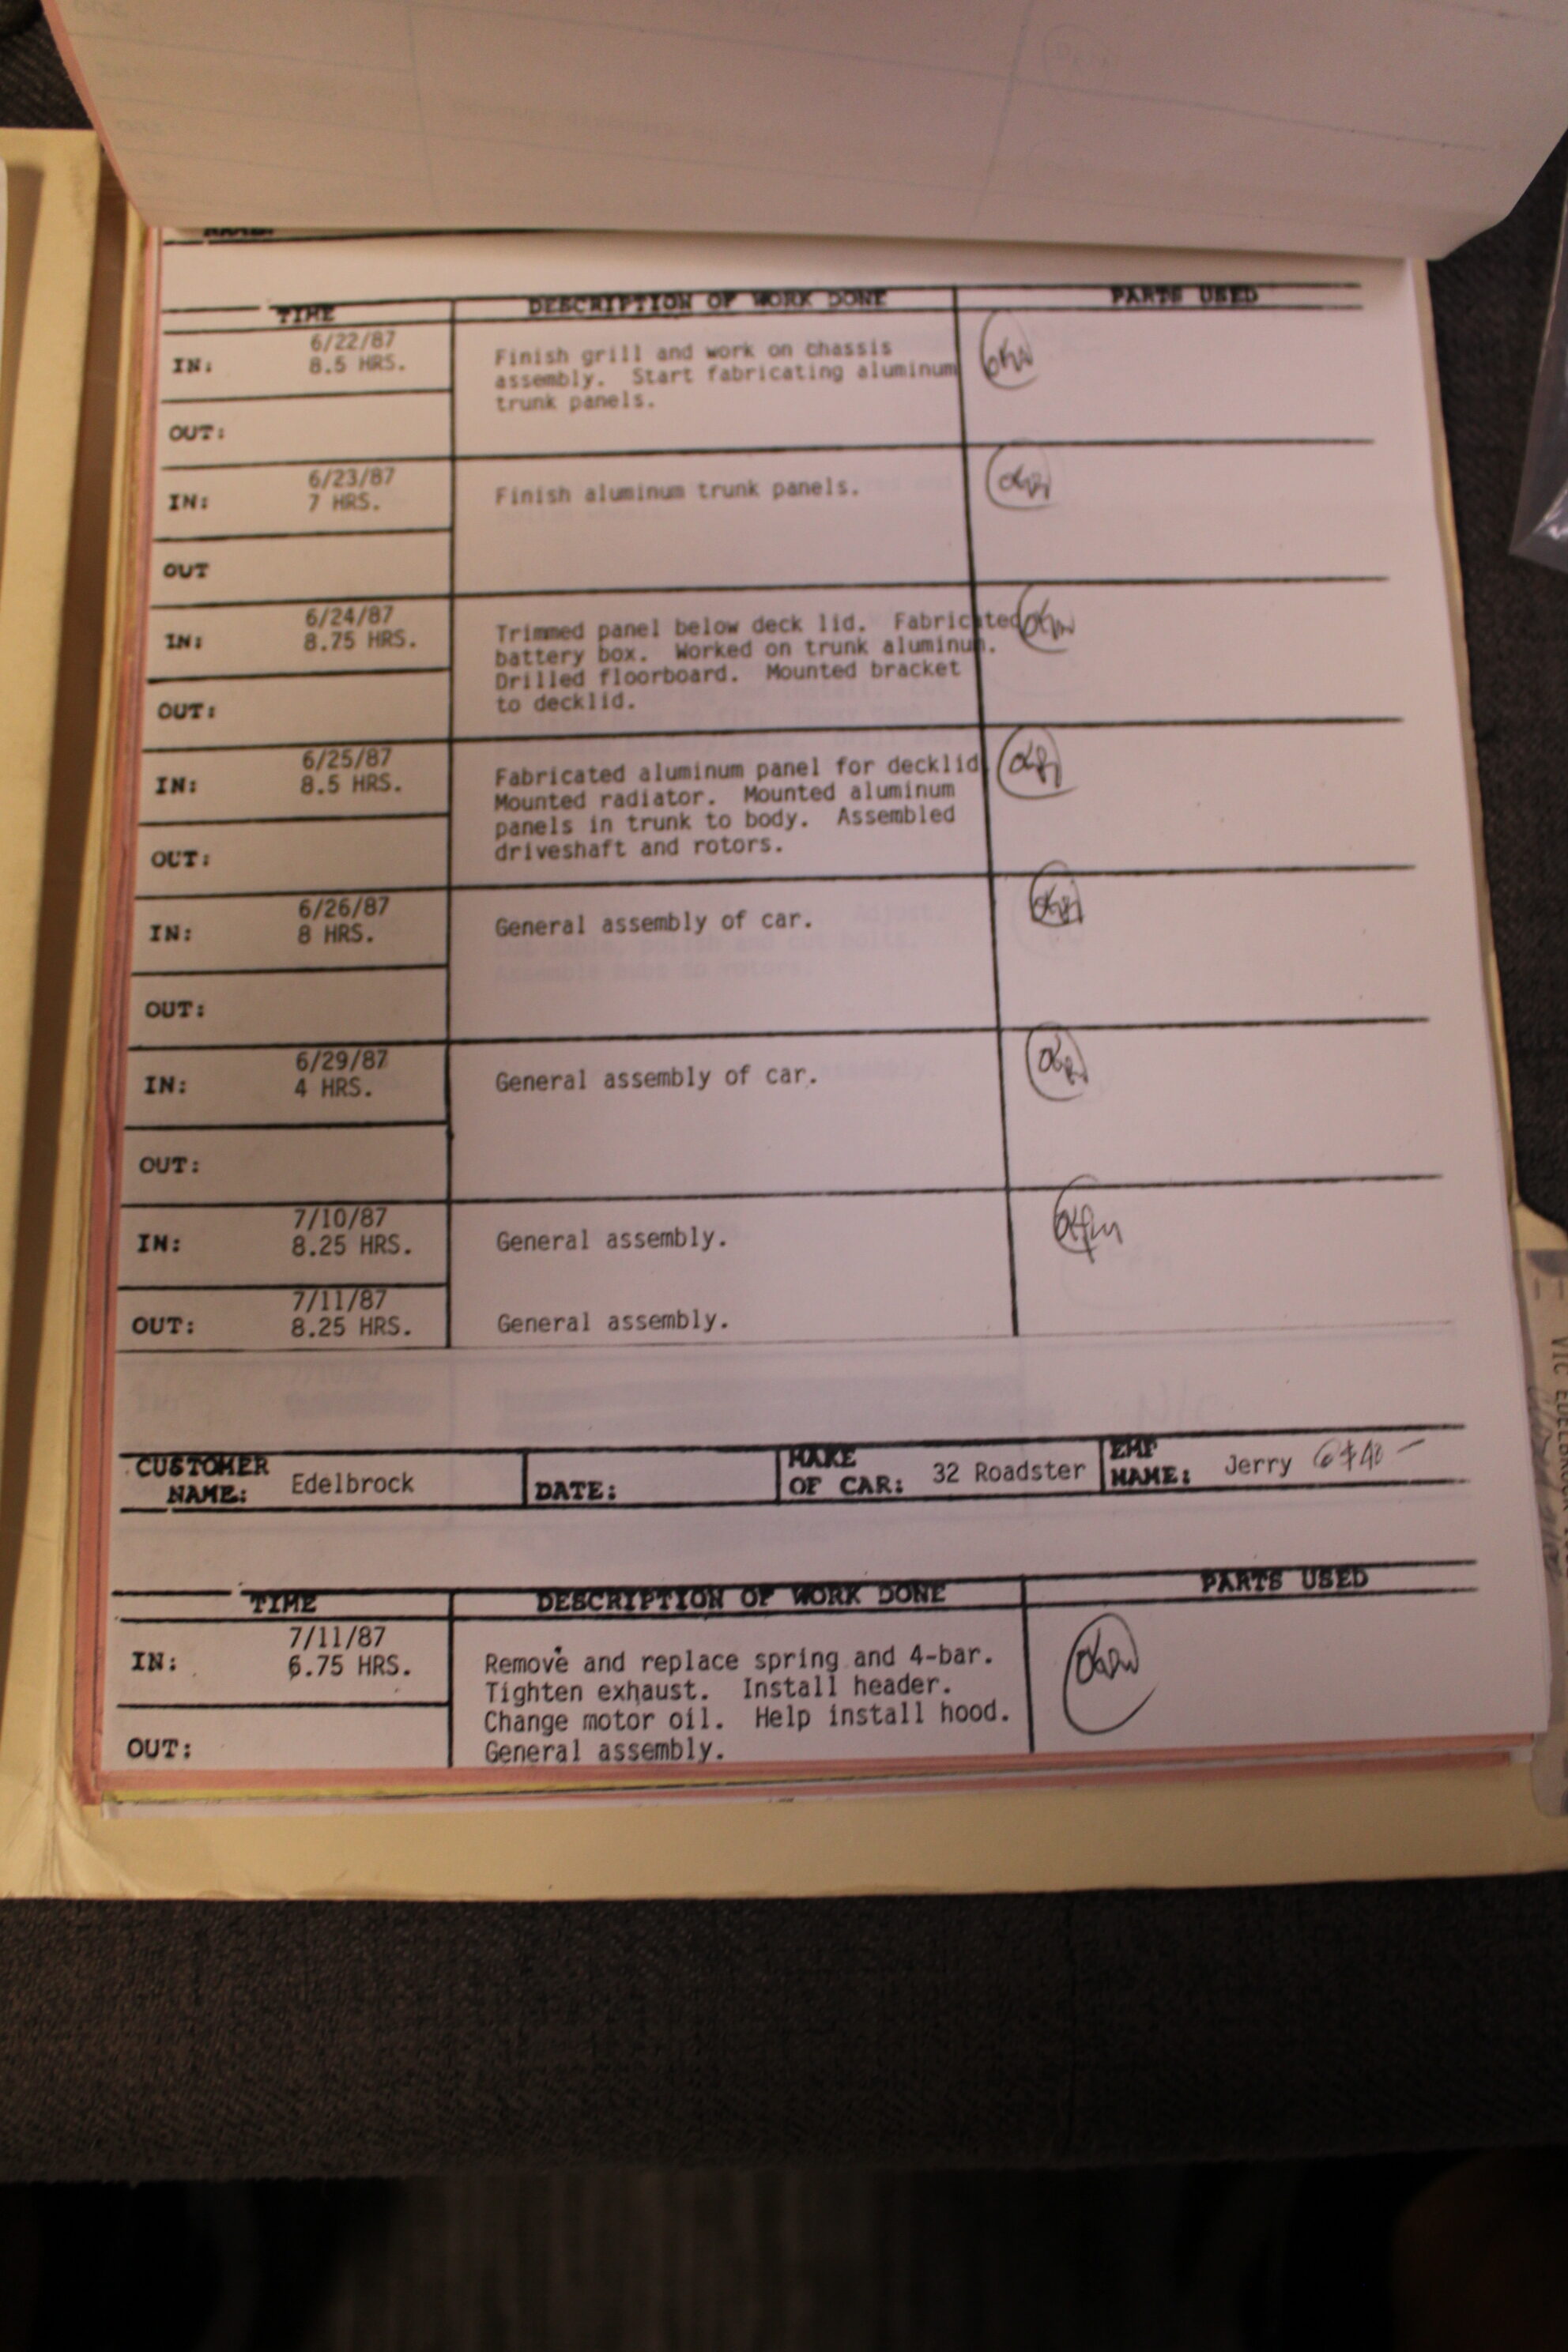 NAME:
TIME DESCRIPTION OF WORK DONE PARTS USED
6/22/87
IN: 8.5 HRS.
Finish grill and work on chassis
assembly. Start fabricating aluminum
trunk panels.
OUT:
6/23/87
IN: 7 HRS.
Finish aluminum trunk panels.
OUT
6/24/87
IN: 8.75 HRS.
Trimmed panel below deck lid. Fabricated
battery box. Worked on trunk aluminum.
Drilled floorboard. Mounted bracket
to decklid.
OUT:
6/25/87
IN: 8.5 HRS.
Fabricated aluminum panel for decklid
Mounted radiator. Mounted aluminum
panels in trunk to body. Assembled
driveshaft and rotors.
OUT:
6/26/87
IN: 8 HRS.
General assembly of car.
OUT:
6/29/87
IN: 4 HRS.
General assembly of car.
OUT:
7/10/87
IN: 8.25 HRS.
General assembly.
7/11/87
OUT: 8.25 HRS.
General assembly.
CUSTOMER NAME: Edelbrock DATE: MAKE OF CAR: 32 Roadster EMP NAME: Jerry @ $40 —
TIME DESCRIPTION OF WORK DONE PARTS USED
7/11/87
IN: 6.75 HRS.
Remove and replace spring and 4-bar.
Tighten exhaust. Install header.
Change motor oil. Help install hood.
General assembly.
OUT: